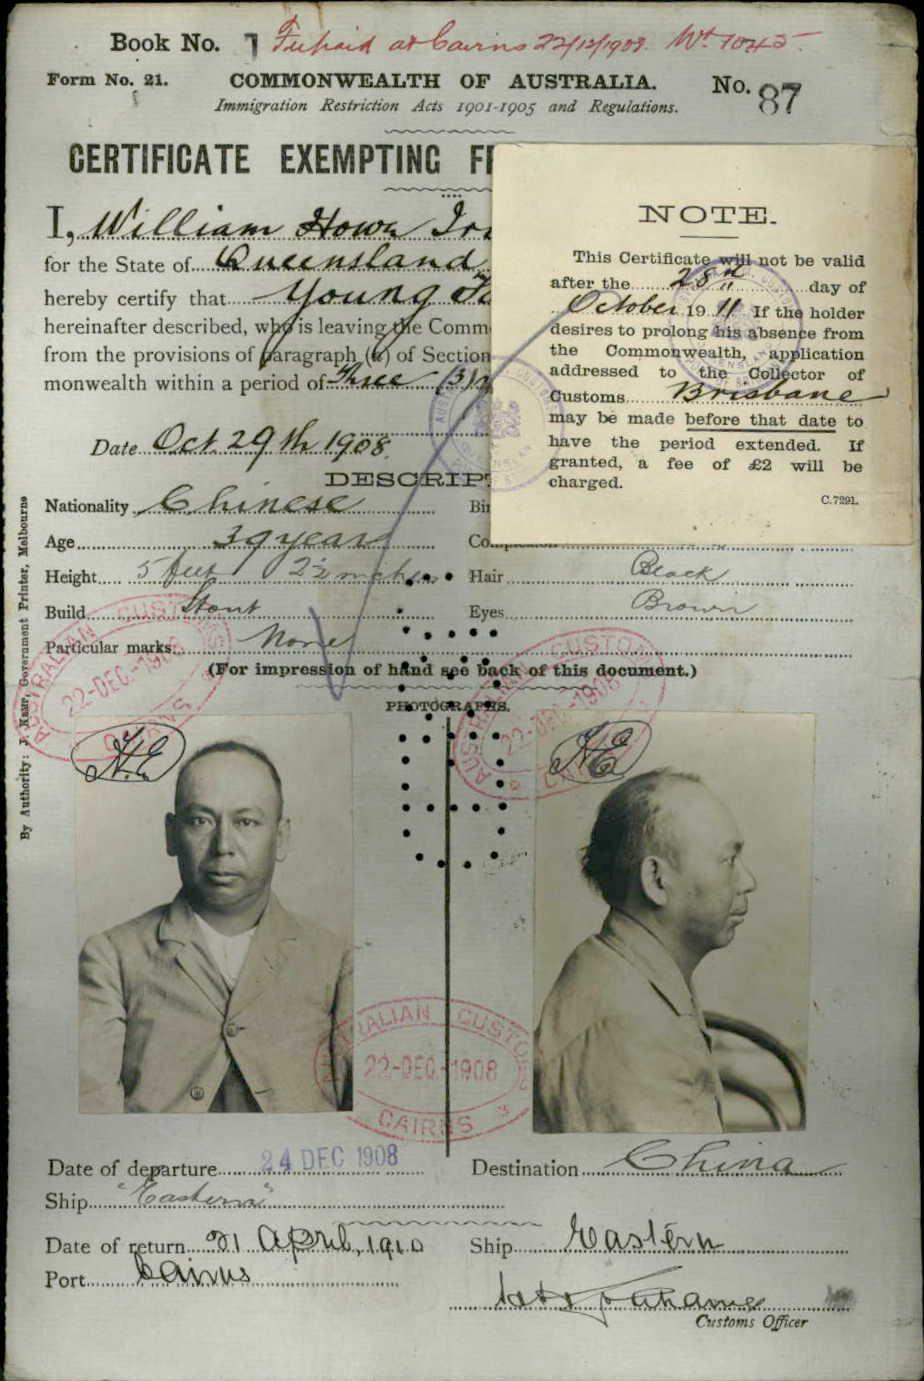 Book No. 7 at Cairns 22/12/1908. 1045
Form No. 21. COMMONWEALTH OF AUSTRALIA. No. 87
Immigration Restriction Acts 1901-1905 and Regulations.
CERTIFICATE EXEMPTING
I, William
for the State of Queensland
hereby certify that Young
hereinafter described, who is leaving the Comm
from the provisions of paragraph of Section
monwealth within a period of Three (3)
Date Oct. 29th 1908.
NOTE.
This Certificate will not be valid
after the 28 day of
October 19 11 If the holder
desires to prolong his absence from
the Commonwealth, application
addressed to the Collector of
Customs Brisbane
may be made before that date to
have the period extended. If
granted, a fee of £2 will be
charged.
C.7291.
DESCRIPT
Nationality Chinese
Age 39 years
Height 5 feet 2½ inches Hair Black
Build Stout Eyes Brown
Particular marks None
(For impression of hand see back of this document.)
PHOTOGRAPHS.
By Authority: J. Kemp, Government Printer, Melbourne
AUSTRALIAN CUSTOMS 22-DEC.-1908 CAIRNS
AUSTRALIAN CUSTOMS 22-DEC.-1908 CAIRNS
H.E. H.E.
AUSTRALIAN CUSTOMS
22-DEC.-1908
CAIRNS
Date of departure 24 DEC 1908 Destination China
Ship "Eastern"
Date of return 21 April, 1910 Ship Eastern
Port Cairns
Customs Officer